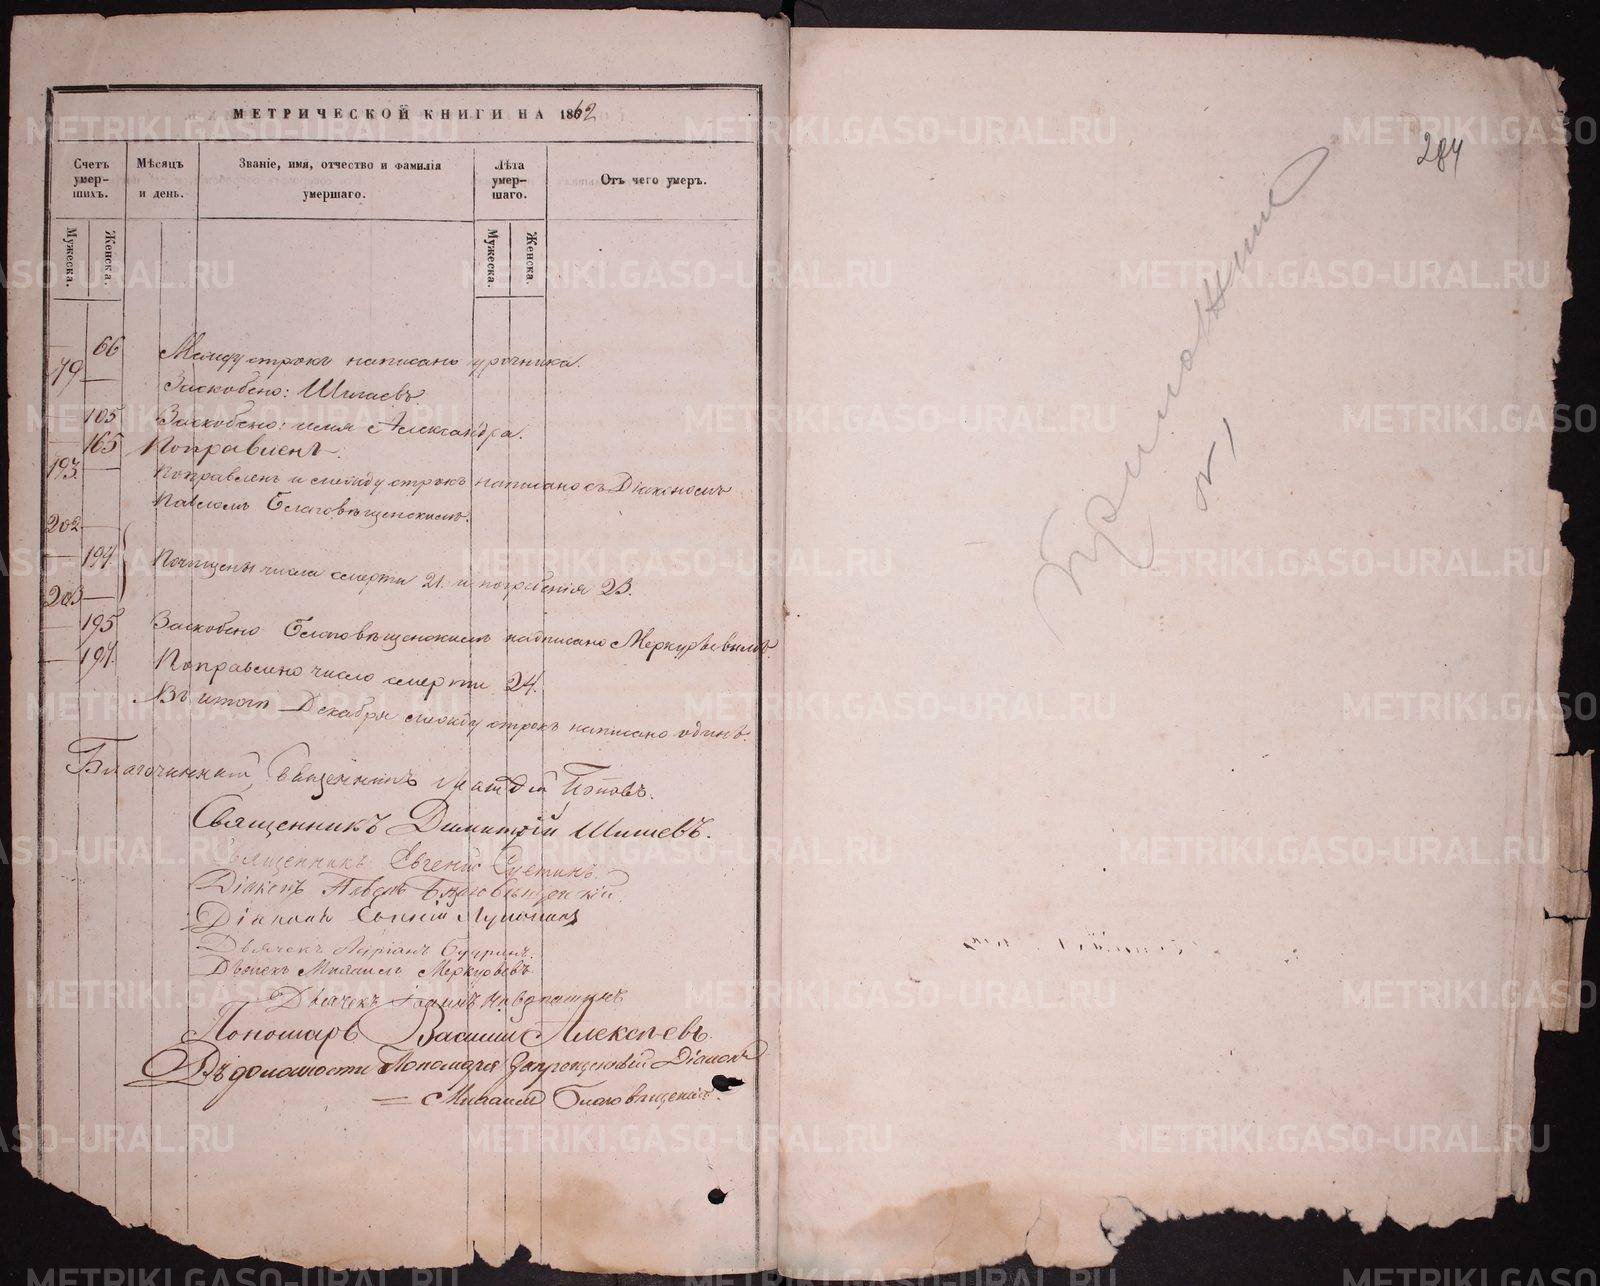 МЕТРИЧЕСКОЙ КНИГИ НА 1862
Счетъ умер-шихъ.
Мѣсяцъ и день.
Званіе, имя, отчество и фамилія умершаго.
Лѣта умер-шаго.
Отъ чего умеръ.
Мужеска.
Женска.
Мужеска.
Женска.
66 Между строкъ написано урочника.
79 Заскоблено: Шишаевъ.
105 Заскоблено: имя Александра.
165 Поправленъ.
193 Поправленъ и между строкъ написано съ Діакономъ
Павломъ Благовѣщенскимъ.
202
194 Почищены числа смерти 21. и погребенія 23.
203
195 Заскоблено Благовѣщенскимъ надписано Меркурьевымъ.
197. Поправлено число смерти 24.
Въ итогѣ Декабря между строкъ написано одинъ.
Благочинный, Священникъ Поповъ.
Священникъ Димитрій Шишевъ.
Священникъ Евгеній
Діаконъ Павелъ Благовѣщенскій.
Діаконъ
Дьячекъ
Дьячекъ Михаилъ Меркурьевъ.
Дьячекъ
Пономарь Василій Алексѣевъ.
Въ должности Пономаря Запрещенный Діаконъ
Михаилъ Благовѣщенскій.
284
Приложение
№ 1
METRIKI.GASO-URAL.RU